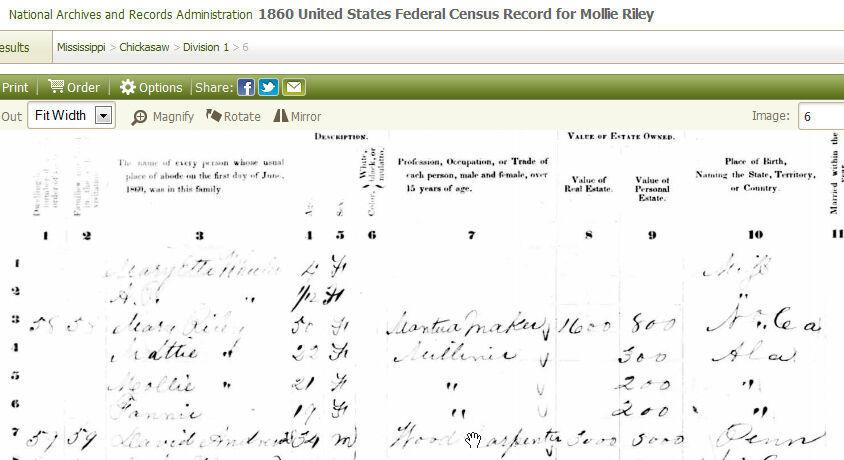 National Archives and Records Administration 1860 United States Federal Census Record for Mollie Riley
esults Mississippi > Chickasaw > Division 1 > 6
Print Order Options Share:
Out Fit Width Magnify Rotate Mirror Image: 6
DESCRIPTION. VALUE OF ESTATE OWNED.
The name of every person whose usual place of abode on the first day of June, 1860, was in this family.
Color, White, black, or mulatto.
Profession, Occupation, or Trade of each person, male and female, over 15 years of age.
Value of Real Estate.
Value of Personal Estate.
Place of Birth, Naming the State, Territory, or Country.
Married within the
1 2 3 4 5 6 7 8 9 10 11
1 Mary Etta 4 F Miss
2 " 1/12 F "
3 58 58 Mary Riley 50 F Mantua Maker 1600 800 No. Ca
4 Mattie " 22 F Milliner 300 Ala
5 Mollie " 21 F " 200 "
6 Fannie 17 F " 200 "
7 59 59 David 34 m Wood Carpenter 3000 5000 Penn